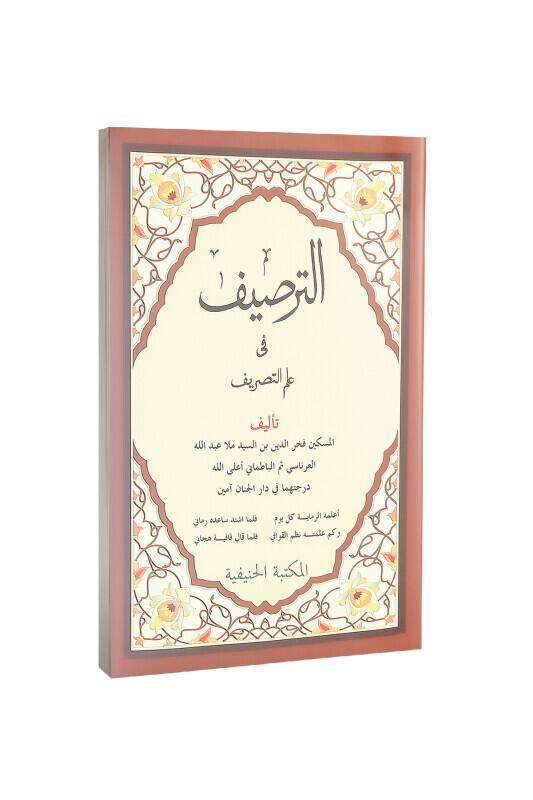 الترصيف
في
علم التصريف
تأليف
المسكين فخر الدين بن السيد ملا عبد الله
العرناسي ثم الباطماني أعلى الله
درجتهما في دار الجنان آمين
أعلمه الرماية كل يوم فلما اشتد ساعده رماني
وكم علمته نظم القوافي فلما قال قافية هجاني
المكتبة الحنيفية